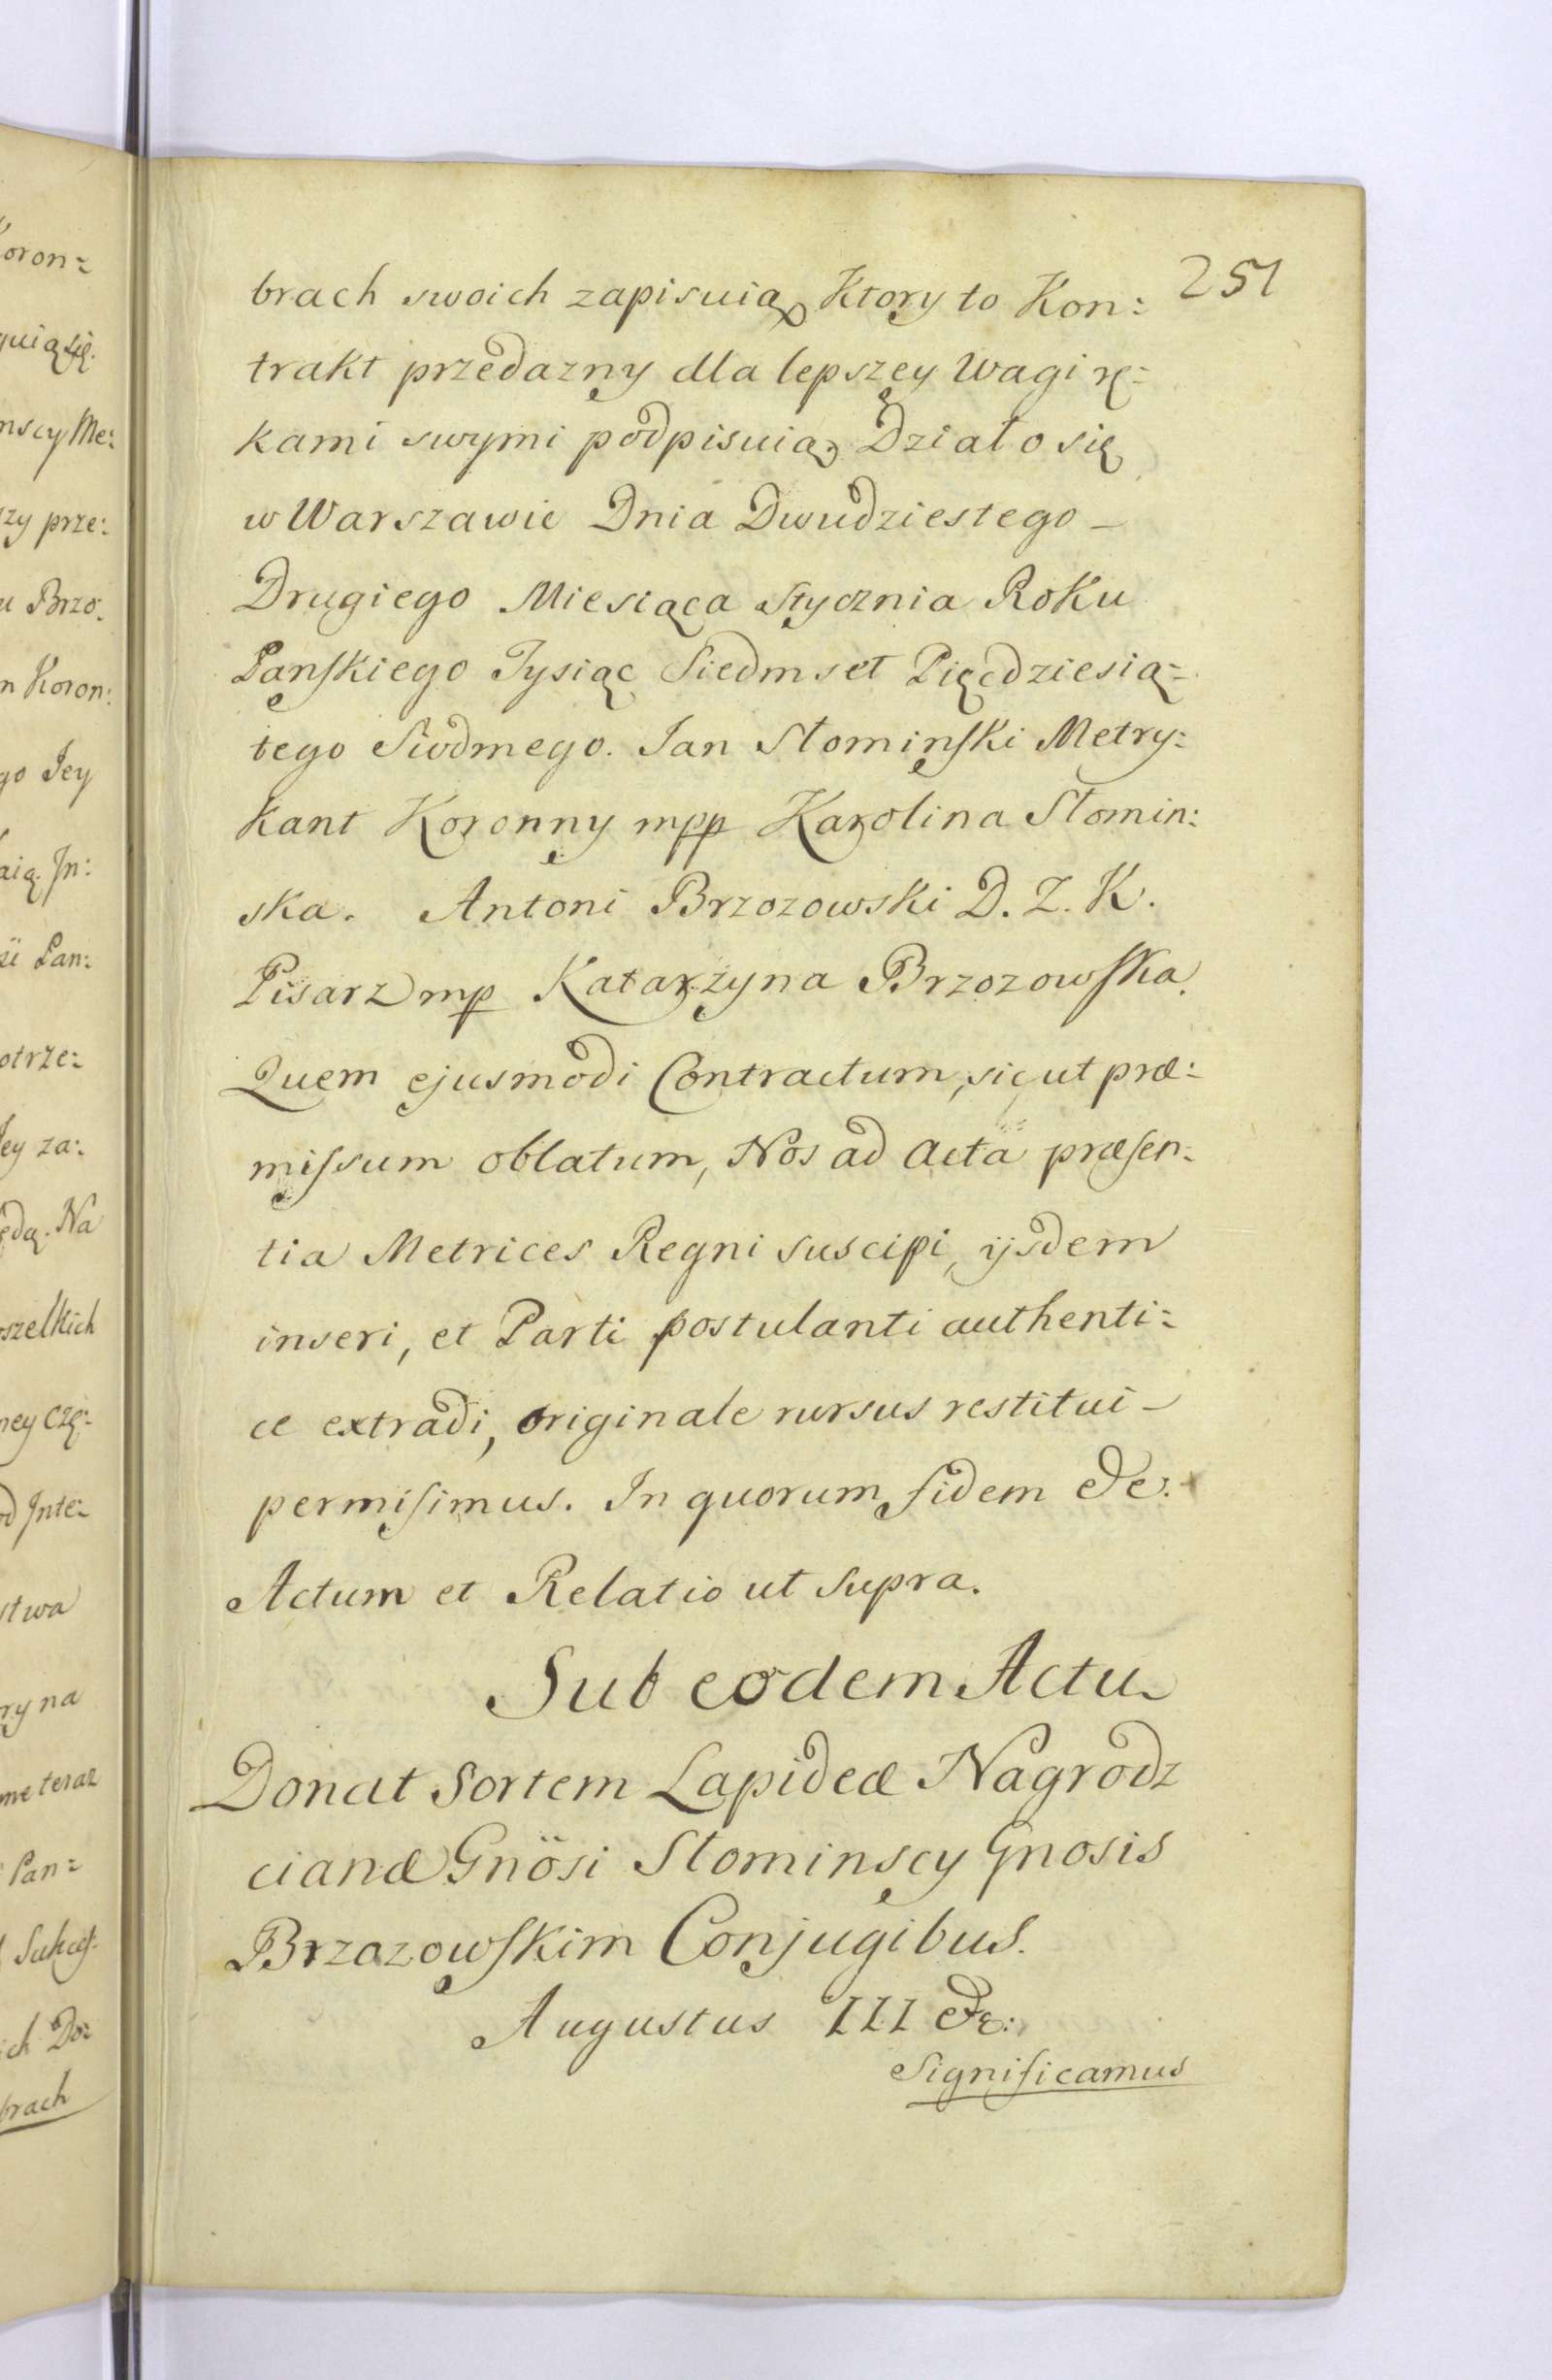 oron=
guią się.
nscy Me:
szy prze:
u Brzo:
n Koron:
go Jey
aią. In:
ii Pan:
otrze:
Jey za:
ędą. Na
wszelkich
ney Czę:
od Inte=
stwa
ry na
me teraz
Pan=
Sukces
ich Do:
brach
251
brach swoich zapisuią, Ktory to Kon:
trakt przedazny dla lepszey Wagi rę=
kami swymi podpisuią, Działo się
w Warszawie Dnia Dwudziestego_
Drugiego Miesiąca Stycznia Roku
Panskiego Tysiąc Siedmset Pięcdziesią=
tego Siodmego. Jan Słominski Metry:
kant Koronny mpp Karolina Słomin:
ska. Antoni Brzozowski D. Z. K.
Pisarz mp Katarzyna Brzozowska.
Quem ejusmodi Contractum, sicut præ:
missum oblatum, Nos ad Acta præsen:
tia Metrices Regni suscipi, ijsdem
inseri, et Parti postulanti authenti=
ce extradi, originale rursus restitui_
permisimus. In quorum fidem &c:
Actum et Relatio ut supra.
Sub eodem Actu
Donat Sortem Lapideæ Nagrodz
cianæ Gnösi Słominscy Gnosis
Brzozowskim Conjugibus.
Augustus III &c:
Significamus